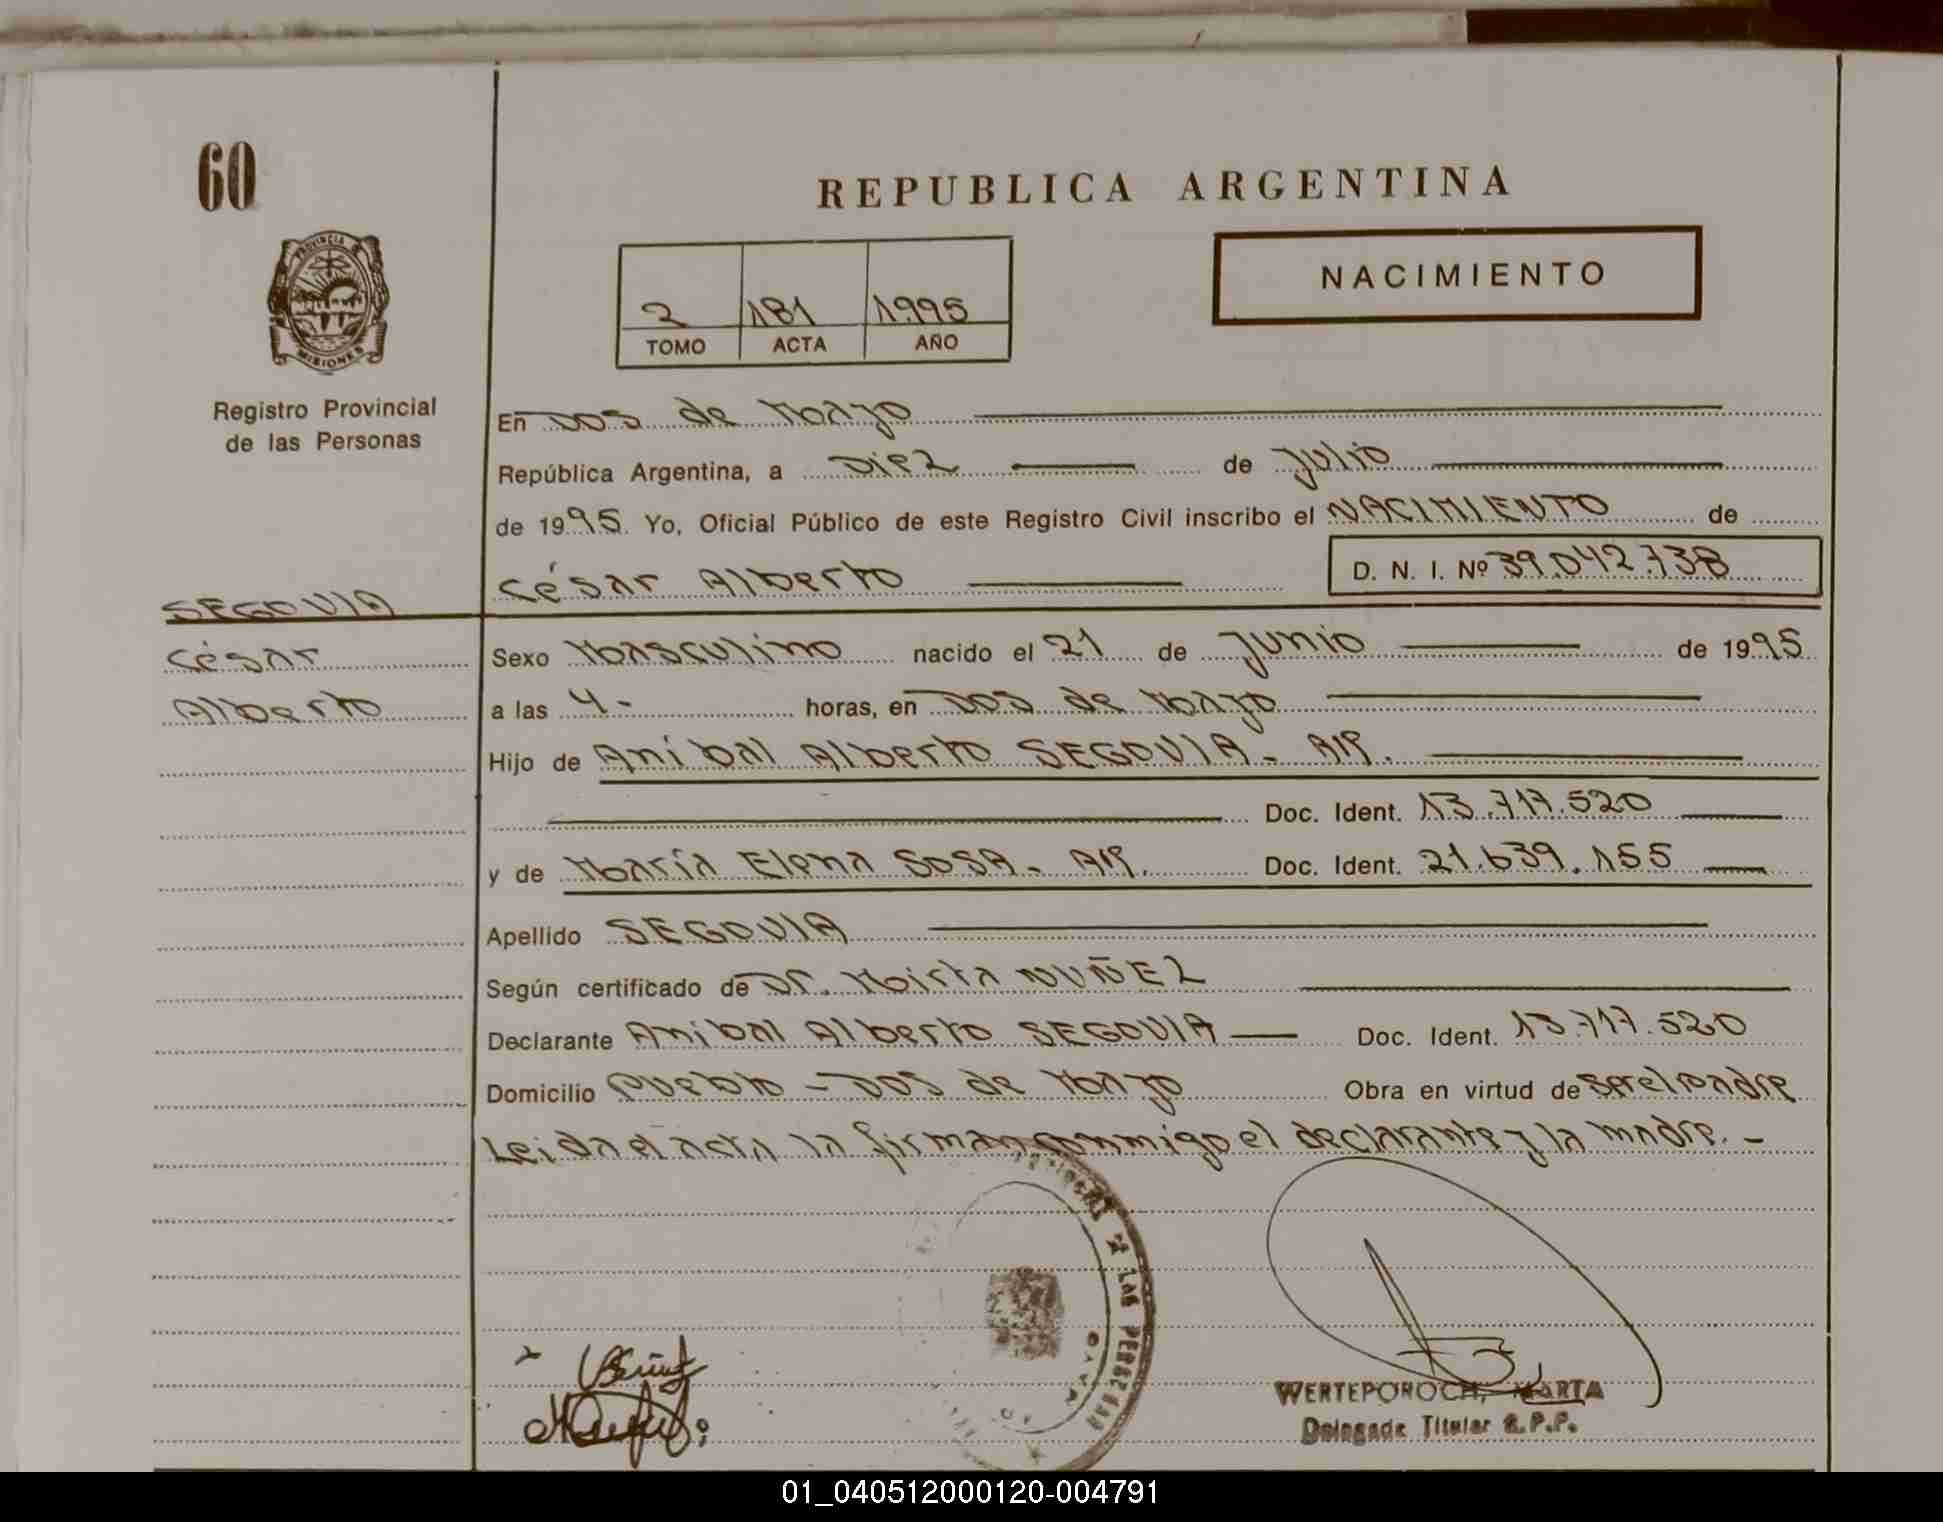 60
REPUBLICA ARGENTINA
PROVINCIA
MISIONES
NACIMIENTO
2 181 1995
TOMO ACTA AÑO
Registro Provincial
de las Personas
En Dos de Mayo
República Argentina, a Diez de Julio
de 1995. Yo, Oficial Público de este Registro Civil inscribo el NACIMIENTO de
César Alberto D. N. I. Nº 39.042.738
SEGOVIA
César
Alberto
Sexo Masculino nacido el 21 de Junio de 1995
a las 4.- horas, en Dos de Mayo
Hijo de Aníbal Alberto SEGOVIA - Arg.
Doc. Ident. 13.717.520
y de María Elena SOSA - Arg. Doc. Ident. 21.639.155
Apellido SEGOVIA
Según certificado de Dr. Mirta NUÑEZ
Declarante Aníbal Alberto SEGOVIA Doc. Ident. 13.717.520
Domicilio Pueblo - Dos de Mayo Obra en virtud de ser el padre
Leida el acta la firman conmigo el declarante y la madre. -
DE LAS PERSONAS
WERTEPOROCH, MARTA
Delegade Titular R.P.P.
01_040512000120-004791